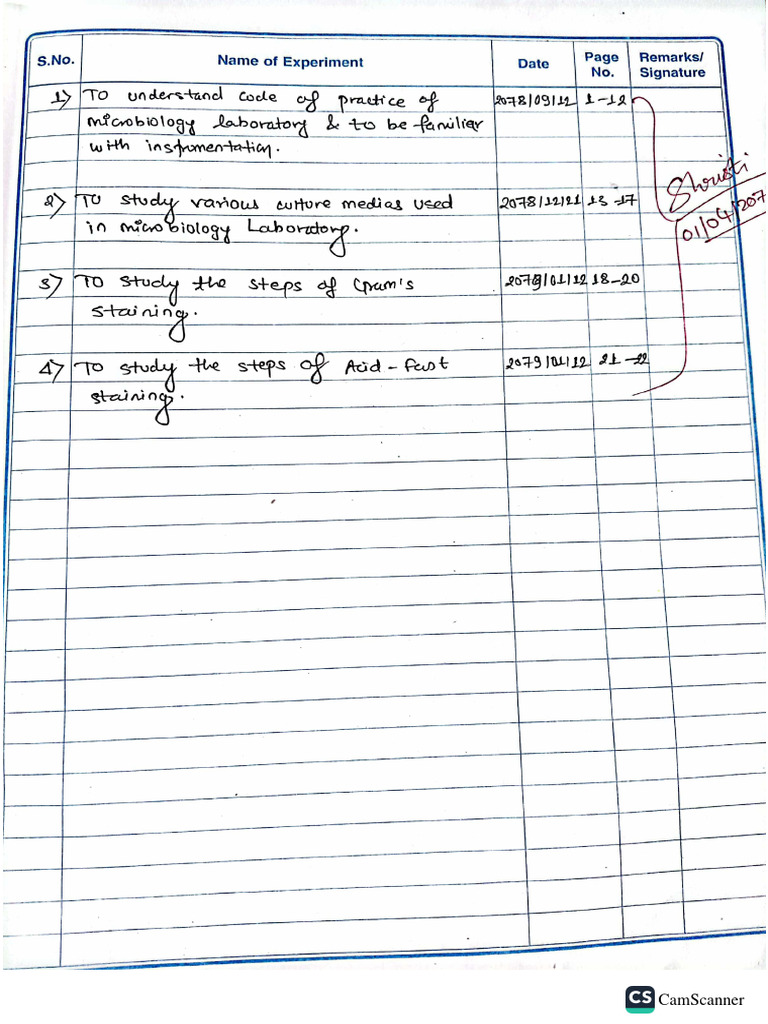 S.No. Name of Experiment Date Page No. Remarks/ Signature
1) To understand code of practice of 2078/09/12 1-12
microbiology laboratory & to be familier
with instrumentation.
2) To study various culture medias used 2078/12/21 13-17
in microbiology Laboratory.
3) To study the steps of Gram's 2079/01/12 18-20
staining.
4) To study the steps of Acid-fast 2079/01/12 21-22
staining.
Shristi
01/04/207
CS CamScanner